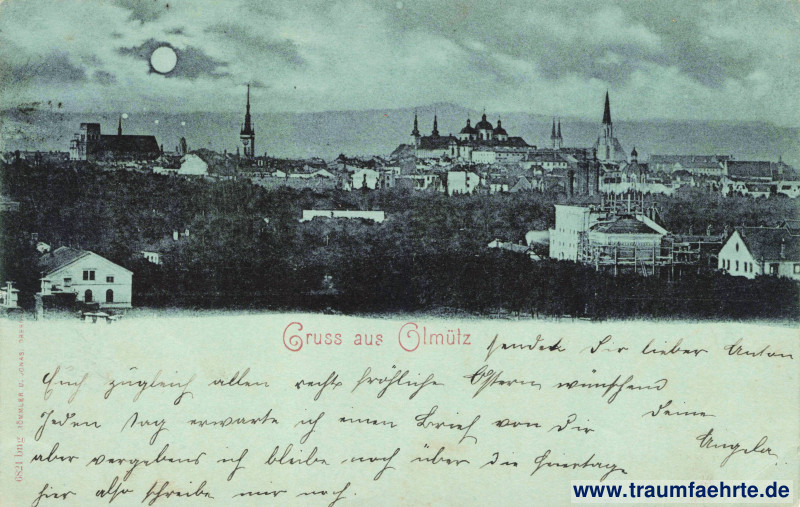 Gruss aus Olmütz
sendet Dir lieber Anton
Euch zugleich allen recht fröhliche Ostern wünschend
Jeden Tag erwarte ich einen Brief von Dir
deine
Angela
aber vergebens ich bleibe noch über die Feiertage
hier also schreibe mir noch.
6821 RÖMMLER & JONAS, DRESD
www.traumfaehrte.de